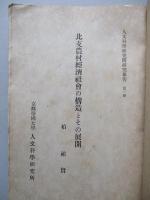 人文科學研究所研究報告 第一冊
北支農村經濟社會の構造とその展開
柏祐賢
京都帝國大學 人文科學研究所